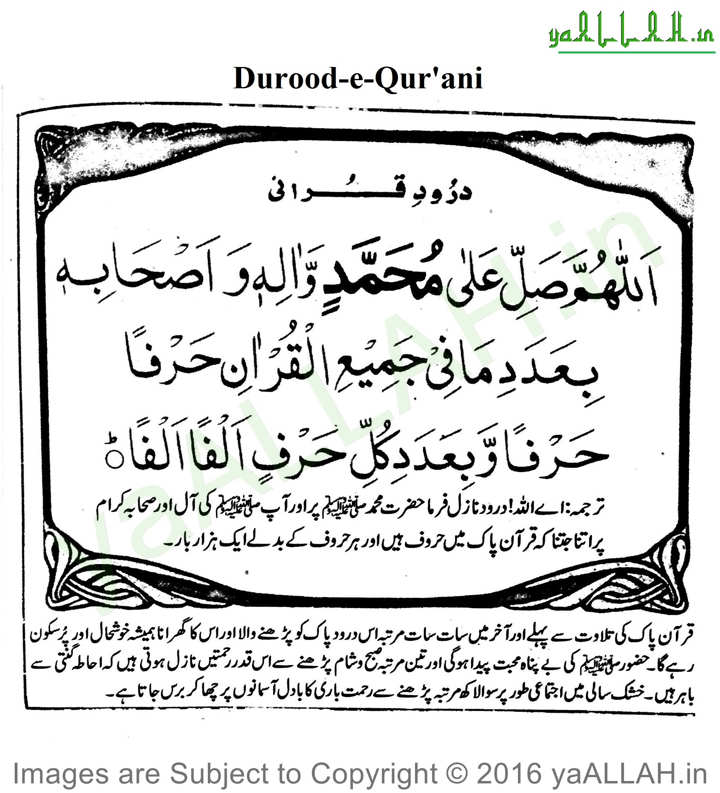 yaALLAH.in
Durood-e-Qur'ani
درُودِ قُرانی
اَللّٰهُمَّ صَلِّ عَلٰى مُحَمَّدٍ وَّاٰلِهٖ وَ اَصْحَابِهٖ
بِعَدَدِ مَا فِىْ جَمِيْعِ الْقُرْاٰنِ حَرْفًا
حَرْفًا وَّبِعَدَدِ كُلِّ حَرْفٍ اَلْفًا اَلْفًا ؕ
ترجمہ: اے اللہ! درود نازل فرما حضرت محمد ﷺ پر اور آپ ﷺ کی آل اور صحابہ کرام
پر اتنا جتنا کہ قرآن پاک میں حروف ہیں اور ہر حروف کے بدلے ایک ہزار بار۔
قرآن پاک کی تلاوت سے پہلے اور آخر میں سات سات مرتبہ اس درود پاک کو پڑھنے والا اور اس کا گھرانا ہمیشہ خوشحال اور پُرسکون
رہے گا۔ حضور ﷺ کی بے پناہ محبت پیدا ہوگی اور تین مرتبہ صبح و شام پڑھنے سے اس قدر رحمتیں نازل ہوتی ہیں کہ احاطہ گنتی سے
باہر ہیں۔ خشک سالی میں اجتماعی طور پر سوا لاکھ مرتبہ پڑھنے سے رحمت باری کا بادل آسمانوں پر چھا کر برس جاتا ہے۔
yaALLAH.in
Images are Subject to Copyright © 2016 yaALLAH.in